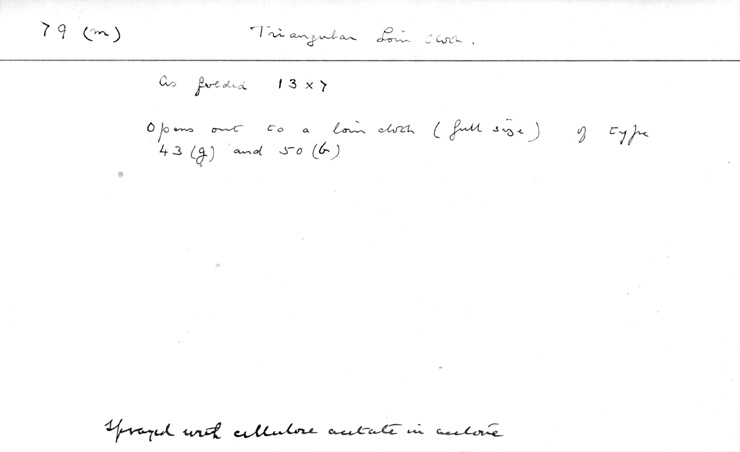 79 (m) Triangular Loin cloth.
As folded 13 x 7
Opens out to a loin cloth (full size) of type
43 (g) and 50 (b)
Sprayed with cellulose acetate in acetone